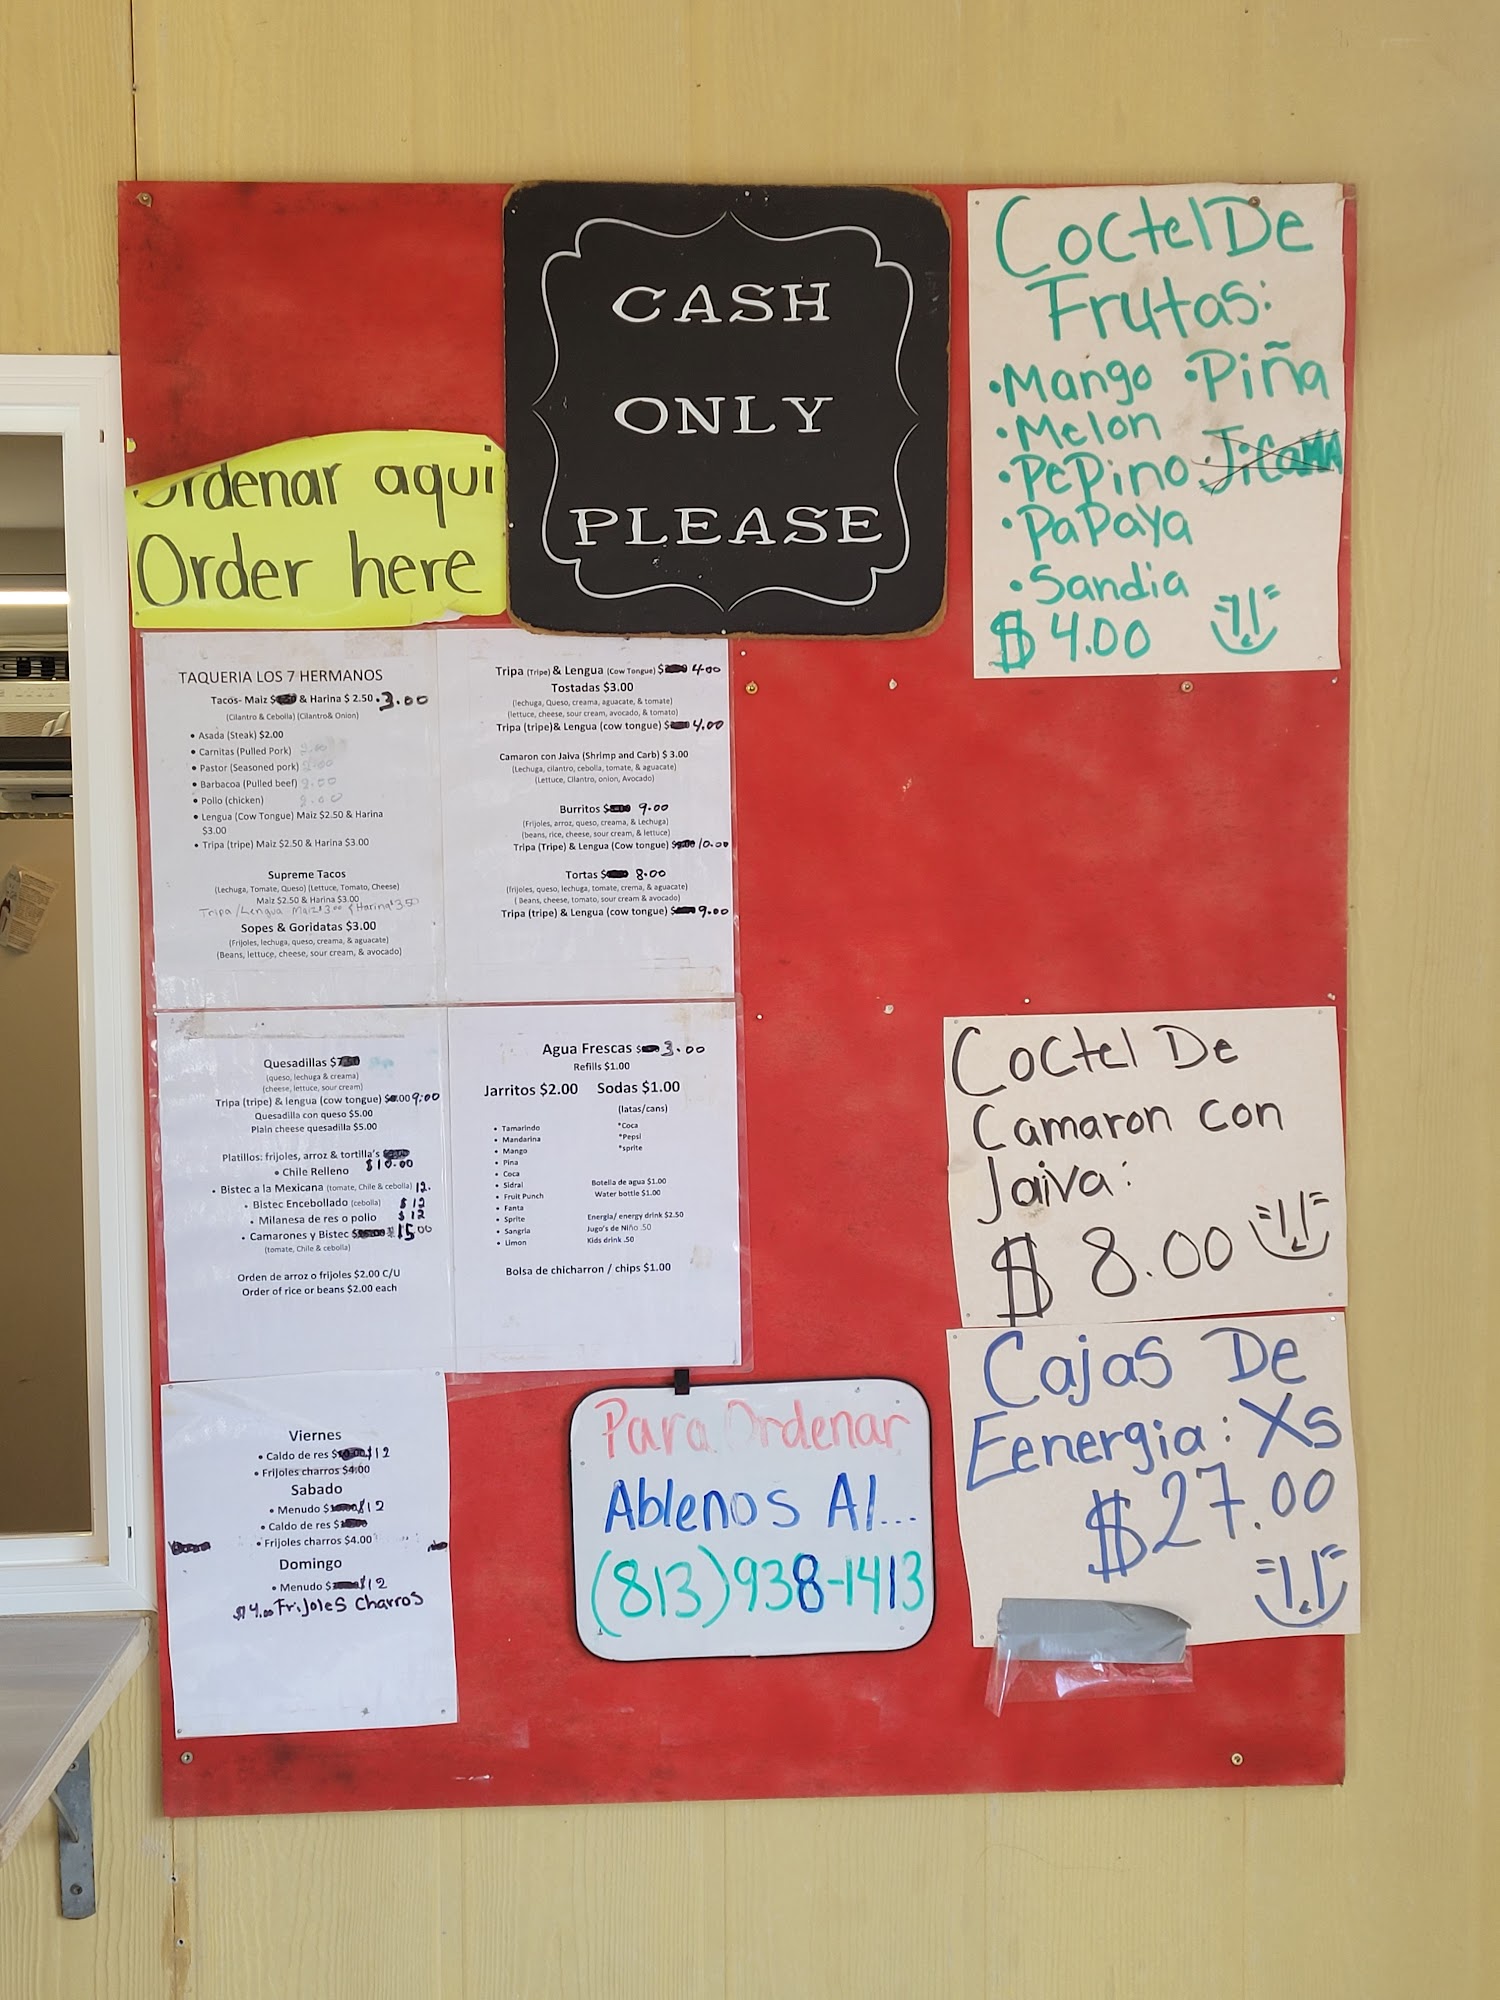 CASH
ONLY
PLEASE
Ordenar aqui
Order here
Coctel De
Frutas:
•Mango •Piña
•Melon
•Pepino •Jicama
•Papaya
•Sandia
$ 4.00
TAQUERIA LOS 7 HERMANOS
Tacos- Maiz $ & Harina $ 2.50 .3.00
(Cilantro & Cebolla) (Cilantro& Onion)
• Asada (Steak) $2.00
• Carnitas (Pulled Pork)
• Pastor (Seasoned pork)
• Barbacoa (Pulled beef)
• Pollo (chicken)
• Lengua (Cow Tongue) Maiz $2.50 & Harina
$3.00
• Tripa (tripe) Maiz $2.50 & Harina $3.00
Supreme Tacos
(Lechuga, Tomate, Queso) (Lettuce, Tomato, Cheese)
Maiz $2.50 & Harina $3.00
Tripa/Lengua Maiz $3.00 & Harina $3.50
Sopes & Goridatas $3.00
(Frijoles, lechuga, queso, creama, & aguacate)
(Beans, lettuce, cheese, sour cream, & avocado)
Tripa (Tripe) & Lengua (Cow Tongue) $ 4.00
Tostadas $3.00
(lechuga, Queso, creama, aguacate, & tomate)
(lettuce, cheese, sour cream, avocado, & tomato)
Tripa (tripe)& Lengua (cow tongue) $ 4.00
Camaron con Jaiva (Shrimp and Carb) $ 3.00
(Lechuga, cilantro, cebolla, tomate, & aguacate)
(Lettuce, Cilantro, onion, Avocado)
Burritos $ 9.00
(Frijoles, arroz, queso, creama, & Lechuga)
(beans, rice, cheese, sour cream, & lettuce)
Tripa (Tripe) & Lengua (Cow tongue) $ 10.00
Tortas $ 8.00
(frijoles, queso, lechuga, tomate, crema, & aguacate)
( Beans, cheese, tomato, sour cream & avocado)
Tripa (tripe) & Lengua (cow tongue) $ 9.00
Quesadillas $
(queso, lechuga & creama)
(cheese, lettuce, sour cream)
Tripa (tripe) & lengua (cow tongue) $ 9.00
Quesadilla con queso $5.00
Plain cheese quesadilla $5.00
Platillos: frijoles, arroz & tortilla's
$10.00
• Chile Relleno
• Bistec a la Mexicana (tomate, Chile & cebolla) 12.
• Bistec Encebollado (cebolla) $ 12
• Milanesa de res o pollo $ 12
• Camarones y Bistec $ 15.00
(tomate, Chile & cebolla)
Orden de arroz o frijoles $2.00 C/U
Order of rice or beans $2.00 each
Agua Frescas $ 3.00
Refills $1.00
Jarritos $2.00 Sodas $1.00
(latas/cans)
• Tamarindo
• Mandarina
• Mango
• Pina
• Coca
• Sidral
• Fruit Punch
• Fanta
• Sprite
• Sangria
• Limon
*Coca
*Pepsi
*sprite
Botella de agua $1.00
Water bottle $1.00
Energia/ energy drink $2.50
Jugo's de Niño .50
Kids drink .50
Bolsa de chicharron / chips $1.00
Coctel De
Camaron con
Jaiva:
$ 8.00
Cajas De
Eenergia: Xs
$27.00
Viernes
• Caldo de res $12
• Frijoles charros $4.00
Sabado
• Menudo $12
• Caldo de res $
• Frijoles charros $4.00
Domingo
• Menudo $12
$4.00 Frijoles Charros
Para Ordenar
Ablenos Al...
(813)938-1413